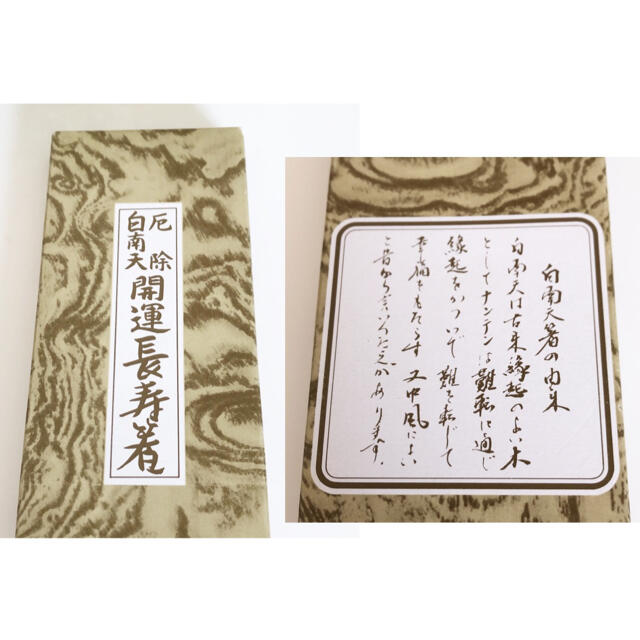 厄除
白南天
開運長寿箸
白南天箸の由来
白南天は古来縁起のよい木
としてナンテンは難転に通じ
縁起をかついで 難を転じて
幸福をもたらす 又中風によい
と昔から言いつたえがあります。